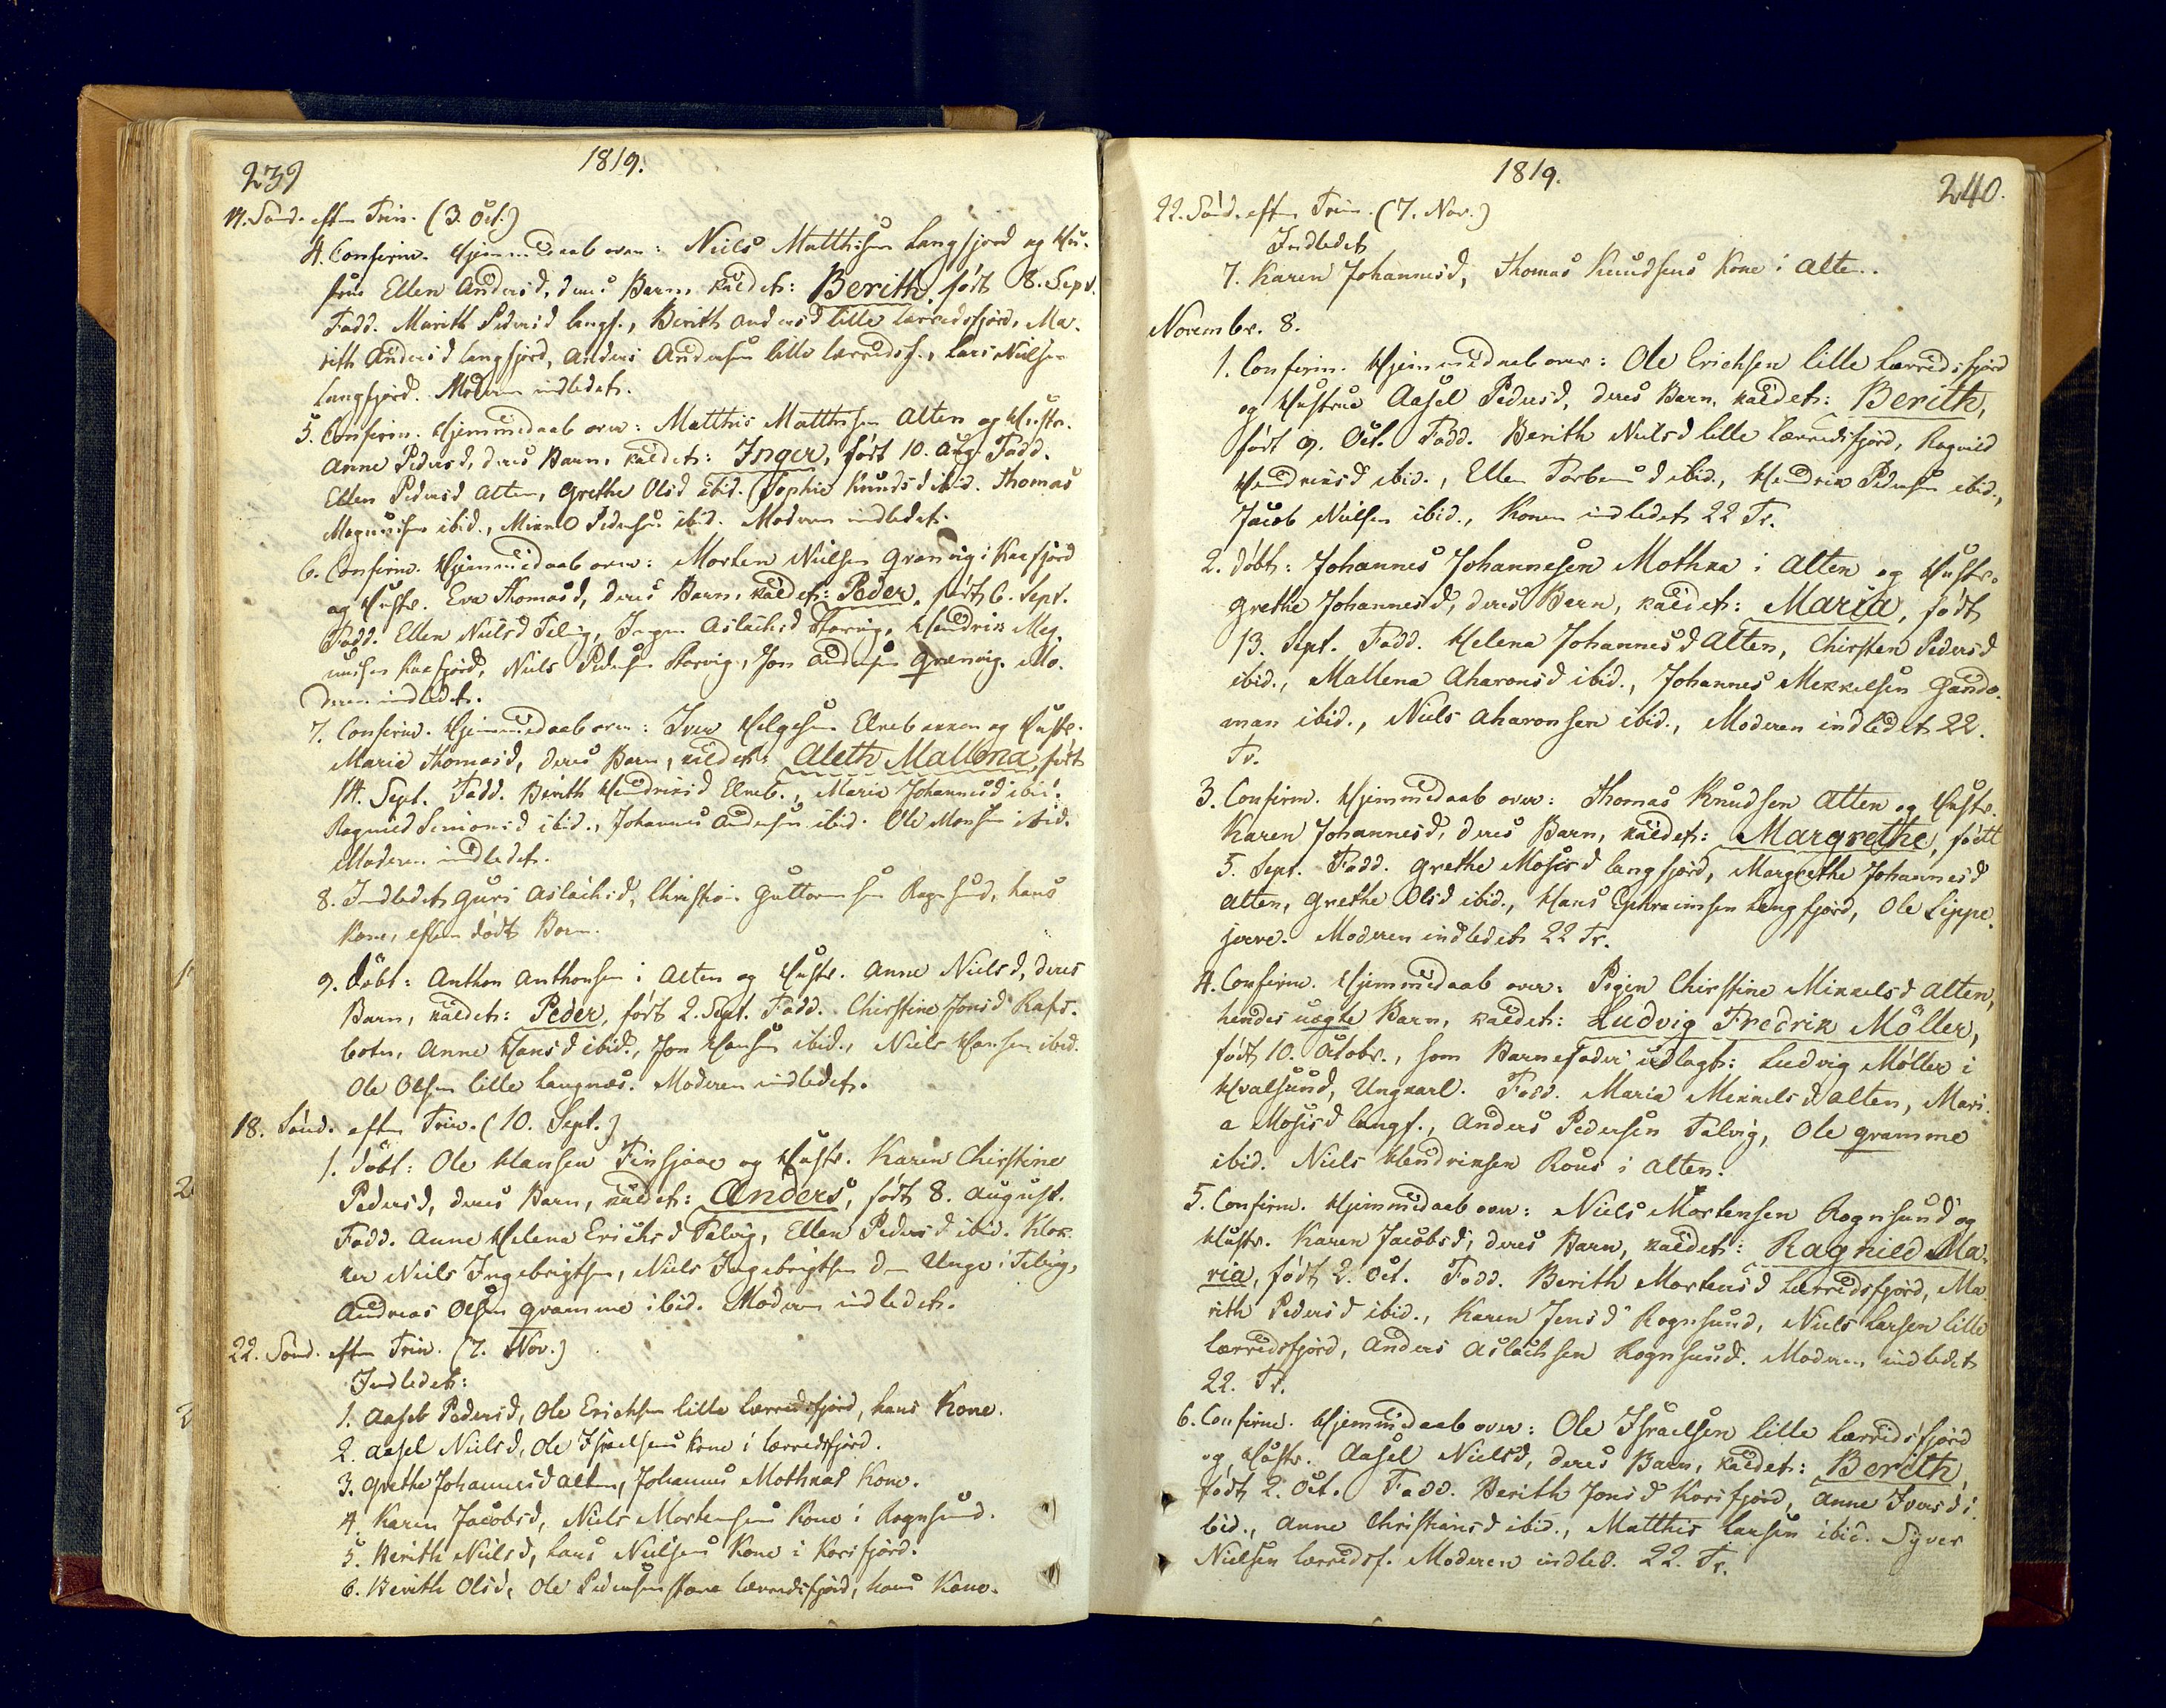 239
1819.
17. Sönd. efter Trin. (3. Oct.)
4. Confirm. Hjemmedaab over: Niels Matthisen Langfjord og Hu-
strue Ellen Andersd, deres Barn, kaldet: Berith, født 8. Sept.
Fadd. Marith Pedersd Langf., Berith Andersd lille Lerredsfjord, Ma-
rith Andersd Langfjord, Anders Andersen lille Lerredsf., Lars Nielsen
Langfjord. Moderen indledet.
5. Confirm. Hjemmedaab over: Matthis Matthisen Alten og Hustr.
Anne Pedersd, deres Barn, kaldet: Inger, født 10. Aug. Fadd.
Ellen Pedersd Alten, Grethe Olsd ibid. Sophie Knudsd ibid. Thomas
Magnusen ibid., Mikkel Pedersen ibid. Moderen indledet.
6. Confirm. Hjemmedaab over: Morten Nielsen Grønvig i Kaafjord
og Hustr. Eva Thomasd, deres Barn, kaldet: Peder, født 6. Sept.
Fadd. Ellen Nielsd Talvig, Inger Aslachsd Storvig, Hendrik Mag-
nusen Kaafjord, Niels Pedersen Storvig, Jon Andersen Grønvig. Mo-
deren indledet.
7. Confirm. Hjemmedaab over: Iver Helgesen Elvebakken og Hustr.
Marie Thomasd, deres Barn, kaldet: Aleth Mallena, født
14. Sept. Fadd. Berith Hendriksd Elveb., Maria Johannesd ibid.
Ragnild Simonsd ibid., Johannes Andersen ibid. Ole Monsen ibid.
Moderen indledet.
8. Indledet Guri Aslachsd, Christen Guttormsen Rognsund, hans
Kone, efter dødt Barn.
9. Døbt: Anthon Anthonsen i Alten og Hustr. Anne Nielsd, deres
Barn, kaldet: Peder, født 2. Sept. Fadd. Chirstine Jonsd Rafs-
botn, Anne Hansd ibid., Jon Hansen ibid., Niels Hansen ibid.
Ole Olsen lille Langnæs. Moderen indledet.
18. Sönd. efter Trin. (10. Sept.)
1. Døbt: Ole Hansen Finsjaae og Hustr. Karen Chirstine
Pedersd, deres Barn, kaldet: Anders, født 8. August.
Fadd. Anne Helena Erichsd Talvig, Ellen Pedersd ibid. Klok-
ker Niels Ingebrigtsen, Niels Ingebrigtsen den Unge i Talvig,
Andreas Olsen Gramme ibid. Moderen indledet.
22. Sönd. efter Trin. (7. Nov.)
Indledet:
1. Aasel Pedersd, Ole Erichsen lille Lerredsfjord, hans Kone.
2. Aasel Nielsd, Ole Israelsens Kone i Lerredsfjord.
3. Grethe Johannesd Alten, Johannes Mothkas Kone.
4. Karen Jacobsd, Niels Mortensens Kone i Rognsund.
5. Berith Nielsd, Lars Nielsens Kone i Korsfjord.
6. Berith Olsd, Ole Pedersen store Lerredsfjord, hans Kone.
1819.
240.
22. Sönd. efter Trin. (7. Nov.)
Indledet
7. Karen Johannesd, Thomas Knudsens Kone i Alten.
Novembr. 8.
1. Confirm. Hjemmedaab over: Ole Erichsen lille Lerredsfjord
og Hustrue Aasel Pedersd, deres Barn, kaldet: Berith,
født 9. Oct. Fadd. Berith Nielsd lille Lerredsfjord, Ragnild
Hendriksd ibid., Ellen Torbensd ibid., Hendrik Pedersen ibid.,
Jacob Nielsen ibid., Konen indledet 22 Tr.
2. Døbt: Johannes Johannesen Mothka i Alten og Hustr.
Grethe Johannesd, deres Barn, kaldet: Maria, født
13. Sept. Fadd. Helena Johannesd Alten, Chirsten Pedersd
ibid., Mallena Aharonsd ibid., Johannes Mekkelsen Gando-
man ibid., Niels Aharonsen ibid., Moderen indledet 22.
Tr.
3. Confirm. Hjemmedaab over: Thomas Knudsen Alten og Hustr.
Karen Johannesd, deres Barn, kaldet: Margrethe, født
5. Sept. Fadd. Grethe Mosisd Langfjord, Margrethe Johannesd
Alten, Grethe Olsd ibid., Hans Ephraimsen Langfjord, Ole Lippe-
jerre. Moderen indledet 22 Tr.
4. Confirm. Hjemmedaab over: Pigen Chirstine Mikkelsd Alten,
hendes uægte Barn, kaldet: Ludvig Fredrik Möller,
født 10. Octobr., som Barnefader udlagt: Ludvig Möller i
Hvalsund, Ungkarl. Fadd. Maria Mikkelsd Alten, Mari-
a Mosisd Langf., Anders Pedersen Talvig, Ole Gramme
ibid. Niels Hendriksen Rous i Alten.
5. Confirm. Hjemmedaab over: Niels Mortensen Rognsund og
Hustr. Karen Jacobsd, deres Barn, kaldet: Ragnild Ma-
ria, født 2. Oct. Fadd. Berith Mortensd Lerredsfjord, Ma-
rith Pedersd ibid., Karen Jensd Rognsund, Niels Larsen lille
Lerredsfjord, Anders Aslachsen Rognsund. Moderen indledet
22. Tr.
6. Confirm. Hjemmedaab over: Ole Israelsen lille Lerredsfjord
og Hustr. Aasel Nielsd, deres Barn, kaldet: Berith,
født 2. Oct. Fadd. Berith Jonsd Korsfjord, Anne Iversd i-
bid., Anne Christiansd ibid., Matthis Larsen ibid. Syver
Nielsen Lerredsf. Moderen indled. 22. Tr.